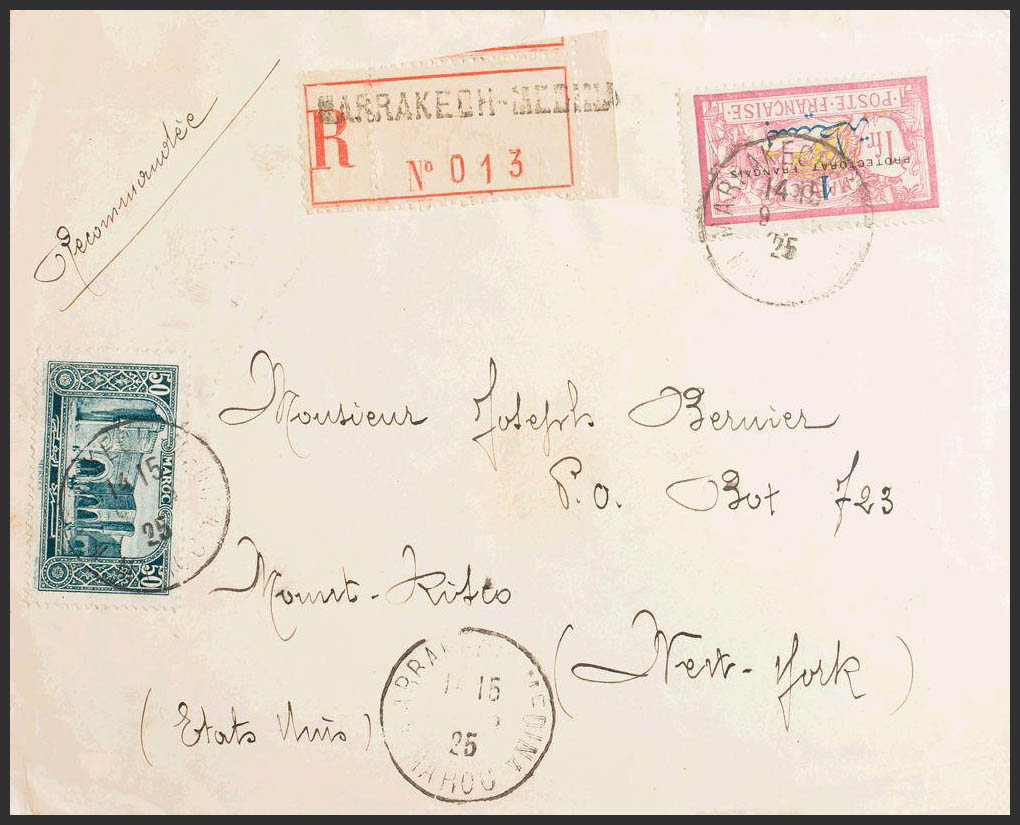 Recommandée
MARRAKECH-MEDINA
R
No 013
POSTE FRANÇAISE
1fr
PROTECTORAT FRANÇAIS
1
MARRAKECH
14 15
9
25
50
MAROC
50
14 15
25
Monsieur Joseph Bernier
P.O. Box 723
Mount-Kisco
(New-York)
(Etats Unis)
MARRAKECH MEDINA
14 15
25
MAROC